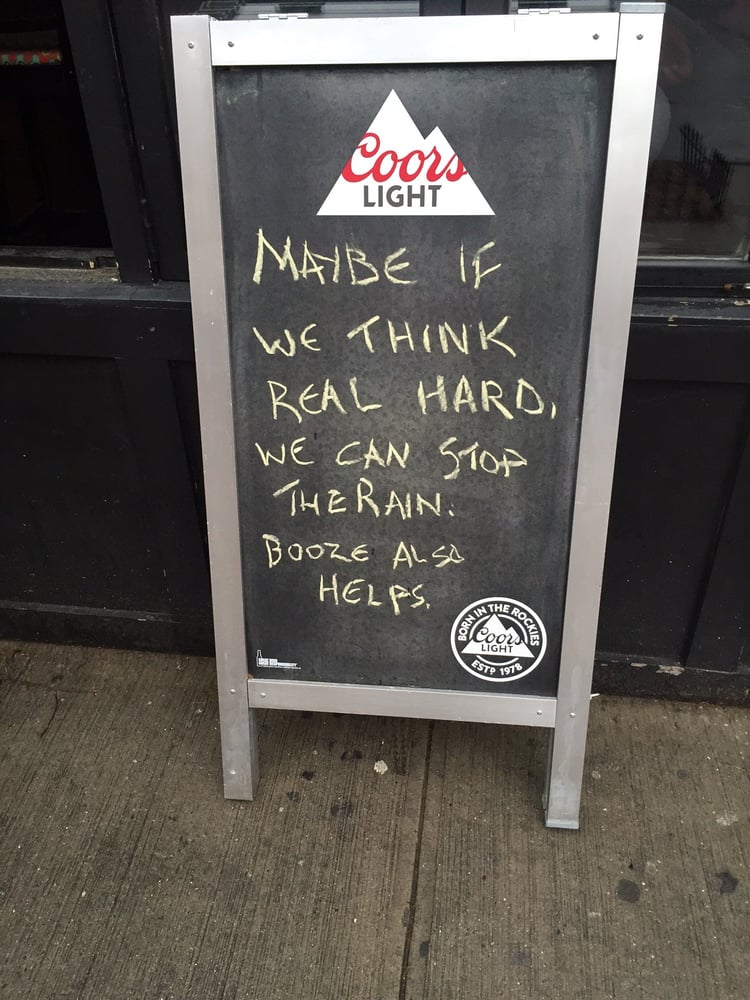 Coors
LIGHT
MAYBE IF
WE THINK
REAL HARD,
WE CAN STOP
THE RAIN.
BOOZE ALSO
HELPS.
BORN IN THE ROCKIES
Coors
LIGHT
ESTD 1978